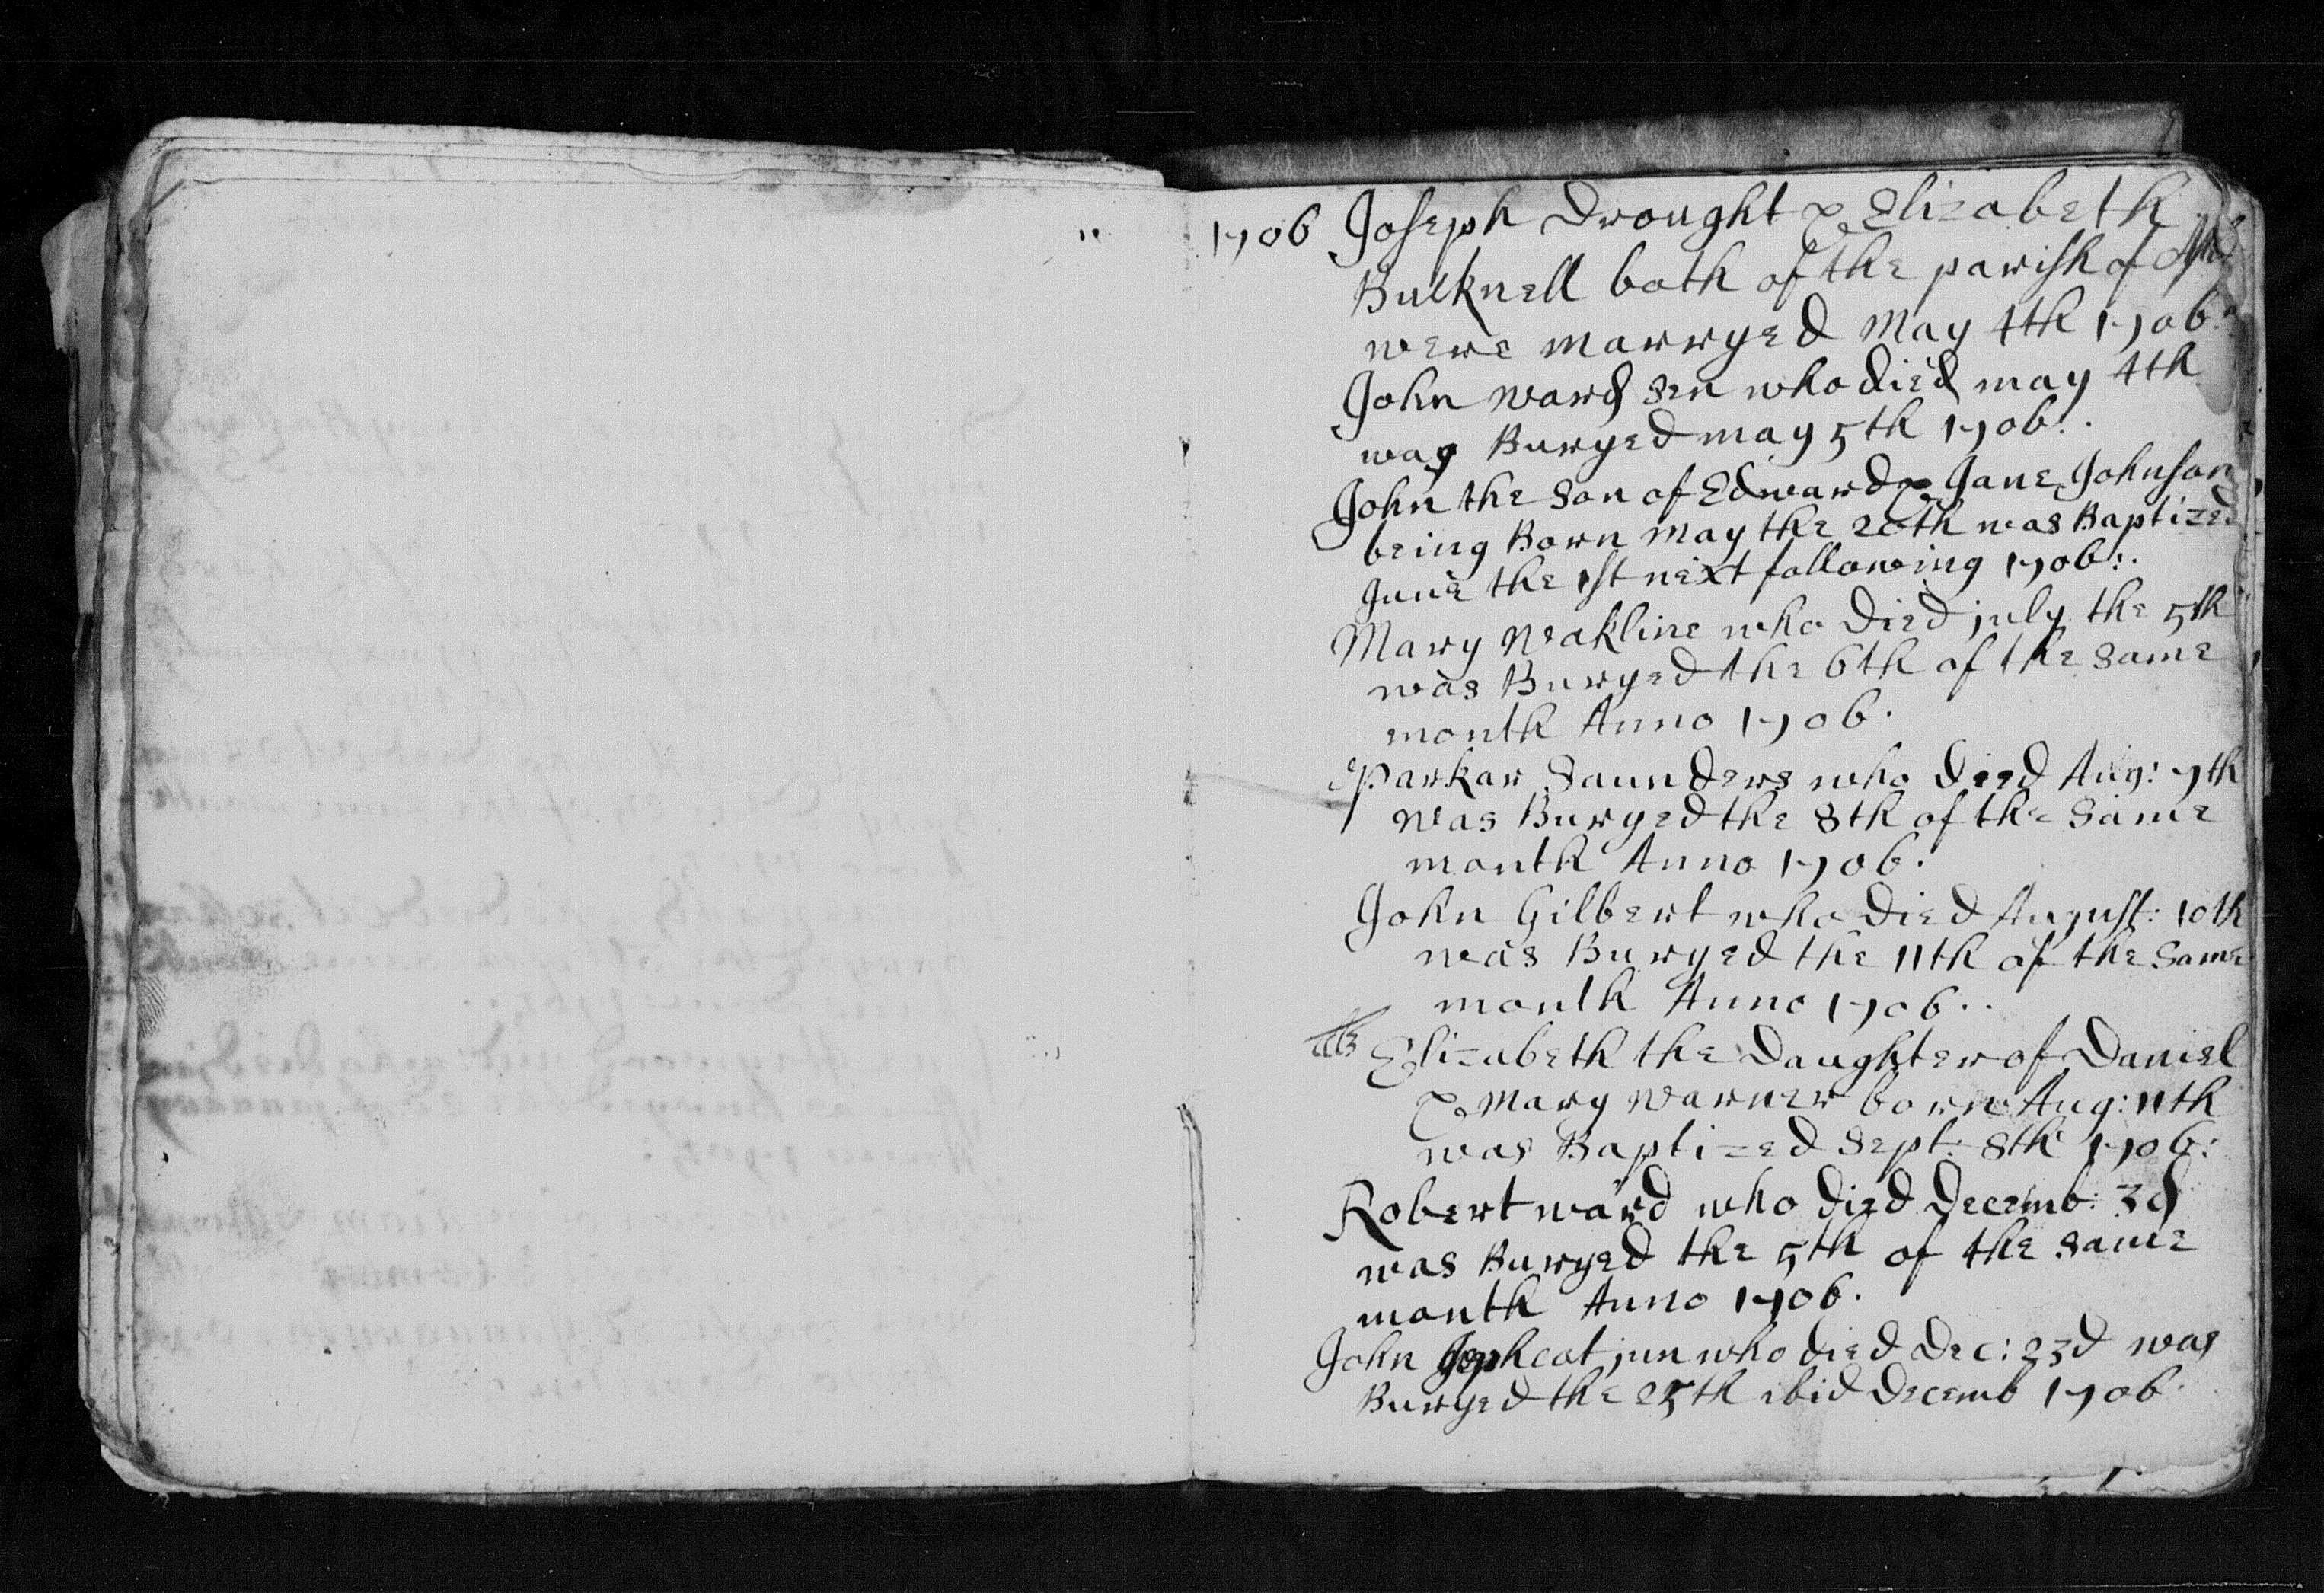 1706 Joseph Drought & Elizabeth
Bucknell both of the parish of
were marryed May 4th 1706:
John Ward sen who died may 4th
was Buryed may 5th 1706:.
John the Son of Edward & Jane Johnson
being Born may the 20th was Baptized
June the 1st next following 1706:.
Mary Wakline who Died july the 5th
was Buryed the 6th of the same
month Anno 1706.
Parkar Saunders who Died Aug: 7th
was Buryed the 8th of the same
month Anno 1706.
John Gilbert who Died August: 10th
was Buryed the 11th of the same
month Anno 1706..
Elizabeth the Daughter of Daniel
& Mary Warner born Aug: 11th
was Baptized Sept: 8th 1706:
Robert ward who Died Decemb: 3d
was Buryed the 5th of the same
month Anno 1706.
John jun who died Dec: 23d was
Buryed the 25th ibid Decemb 1706.